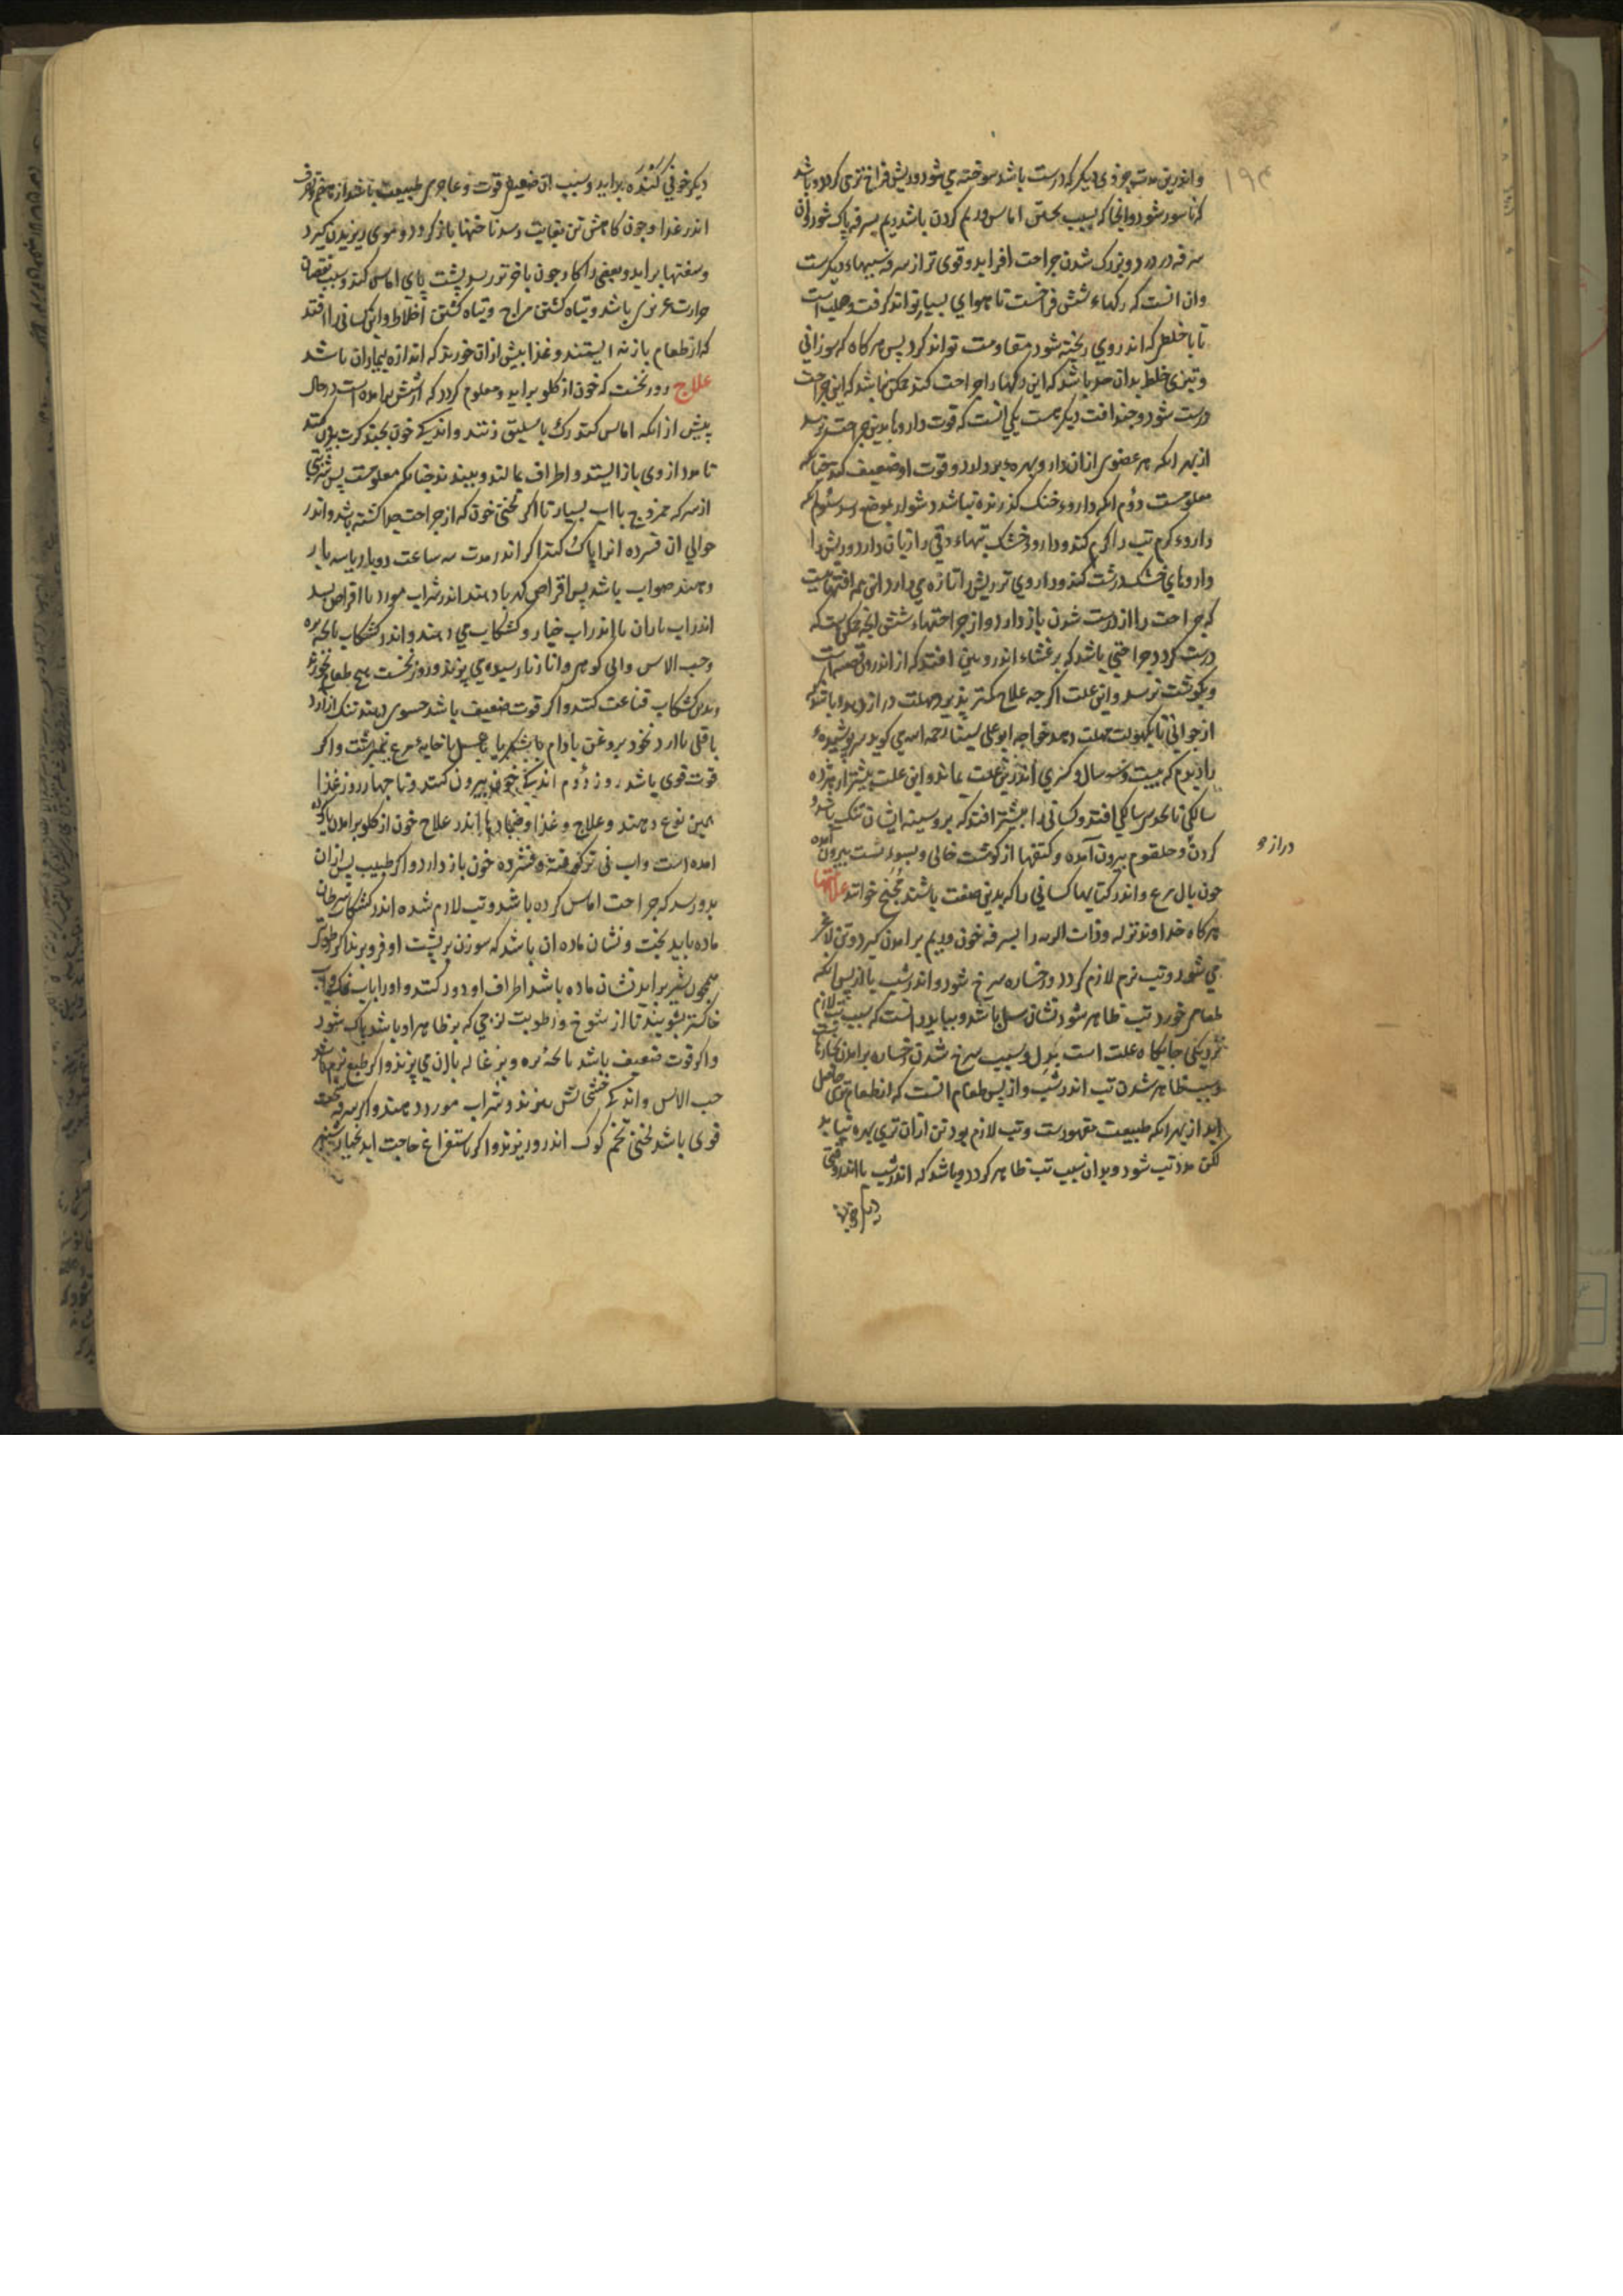 ۱۹۴
و اندرین مدت جزوی دیگر که درست باشد سوخته می شود و ریش فراخ تری کردد و باشد
که ناسور شود و انجا که بسبب پختن اماس و ریم کردن باشد ریم بسرفه پاک شود و از
سرفه درد و بزرک شدن جراحت افزاید و قوی تر از سرفه سببهاء دیکرست
و ان انست که رکهاء شش فراخست تا هوای بسیار تواند کرفت و صلب است
تا با خلطی که اندر وی ریخته شود مقاومت تواند کرد پس هرکاه که سوزانی
و تیزی خلط بدان حد باشد که این رکها را جراحت کند ممکن نباشد که این جراحت
درست شود و چند افت دیکر هست یکی انست که قوت دارو بدین جراحت نرسد
از بهر انکه هر عضوی از ان دارو بهره بردارد و قوت او ضعیف کند چنانکه
معلومست دوم انکه داروء خنک کذرنده نباشد دشوار بموضع رسد سوم انکه
داروء کرم تب را کرم کند و داروء خشک تبهاء دق را زیان دارد و ریش را
داروهای خشک درشت کند و داروی تر ریش را تازه می دارد این همه افتهاست
که جراحت را از درست شدن باز دارد و از جراحتهاء شش انچه ممکن است که
درست کردد جراحتی باشد که بر غشاء اندرونی افتد که از اندرون قصبه است
و بکوشت نرسد و این علت اکرچه علاج کمتر پذیرد مهلت دراز دهد و باشد که
از جوانی تا بکهولت مهلت دهد خواجه ابو علی سینا رحمه الله می کوید سرپوشیده
را دیدم که بیست و سه سال و کسری اندرین علت بماند و این علت بیشتر از هژده
سالکی تا بحد سی سالکی افتد و کسانی را بیشتر افتد که بر و سینه ایشان تنک باشد و
کردن و حلقوم بیرون آمده و کتفها از کوشت خالی و بسوء پشت بیرون آمده
دراز و
چون بال مرغ و اندر کتابها کسانی را که بدین صفت باشند مجنح خوانند علامتها
هرکاه خداوند نزله و ذات الریه را بسرفه خون و ریم برامدن کیرد و تن لاغر
می شود و تب نرم لازم کردد و رخساره سرخ شود و اندر شب یا از پس انکه
طعامی خورد تب ظاهر شود نشان سل باشد و بباید دانست که سبب تب لازم
نزدیکی جایکاه علت است بدل و سبب سرخ شدن رخساره برامدن بخارهاست
و سبب ظاهر شدن تب اندر شب و از پس طعام انست که از طعام تری حاصل
اید از بهر انکه طبیعت مقهورست و تب لازم بود تن ازان تری بهره نیابد
لکن مدد تب شود و بدان سبب تب ظاهر کردد و باشد که اندر شب یا اندر وقتی
دیکر خوی
دیکر خوی کنده براید و سبب ان ضعیفی قوت و عاجزی طبیعت باشد از هضم و تصرف
اندر غذا و چون کاهش تن بغایت رسد ناخنها باز کردد و موی ریزیدن کیرد
و سفتها براید و بعضی را کاه و چون باخر تر رسد پشت پای اماس کند و سبب نقصان
حرارت غریزی باشد و تباه کشتن مزاج و تباه کشتن اخلاط و این کسانی را افتد
که از طعام باز نه ایستند و غذا بیش از ان خورند که اندازه بیماران باشد
علاج روز نخست که خون از کلو براید و معلوم کردد که از شش برامده است درحال
پیش از انکه اماس کند رک باسلیق زنند و اندکی خون بچند کرت بیرون کنند
تا مدد از وی باز ایستد و اطراف بمالند و ببندند چنانکه معلومست پس شربتی
از سرکه ممزوج با اب بسیار تا اکر لختی خون که از جراحت جدا کشته باشد و اندر
حوالی ان فسرده انرا پاک کند اکر اندر مدت سه ساعت دو بار یا سه بار
دهند صواب باشد پس اقراص کهربا دهند اندر شراب مورد یا اقراص بسد
اندر اب باران یا اندر اب خیار و کشکاب می دهند و اندر کشکاب پاچه بره
و حب الاس و ابی کوهی و انار نارسیده می پزند و روز نخست هیچ طعام نخورد
و بدین کشکاب قناعت کنند و اکر قوت ضعیف باشد حسوی دهند تنک از ارد
باقلی یا ارد نخود بروغن بادام یا بشکر یا بعسل با خایه مرغ نیمبرشت و اکر
قوت قوی باشد روز دوم اندکی خون بیرون کنند و تا چهار روز غذا
همین نوع دهند و علاج و غذا و ضمادها اندر علاج خون از کلو برامدن یاد کرده
امده است و اب نی تر کوفته و فشرده خون باز دارد و اکر طبیب پس ازان
بدو رسد که جراحت اماس کرده باشد و تب لازم شده اندر کشکاب سرطان
ماده بباید پخت و نشان ماده ان باشد که سوزن بر پشت او فرو برند اکر رطوبتی
همچون شیر براید نشان ماده باشد اطراف او دور کنند و او را باب نمک و اب
خاکستر بشویند تا از شوخ و رطوبت لزجی که بر ظاهر او باشد پاک شود
و اکر قوت ضعیف باشد پاچه بره و بزغاله با ان می پزند و اکر طبع نرم باشد
حب الاس و اندکی خشخاش بپزند و شراب مورد دهند و اکر سرفه سخت
قوی باشد لختی تخم کوک اندر وی پزند و اکر باستفراغ حاجت اید